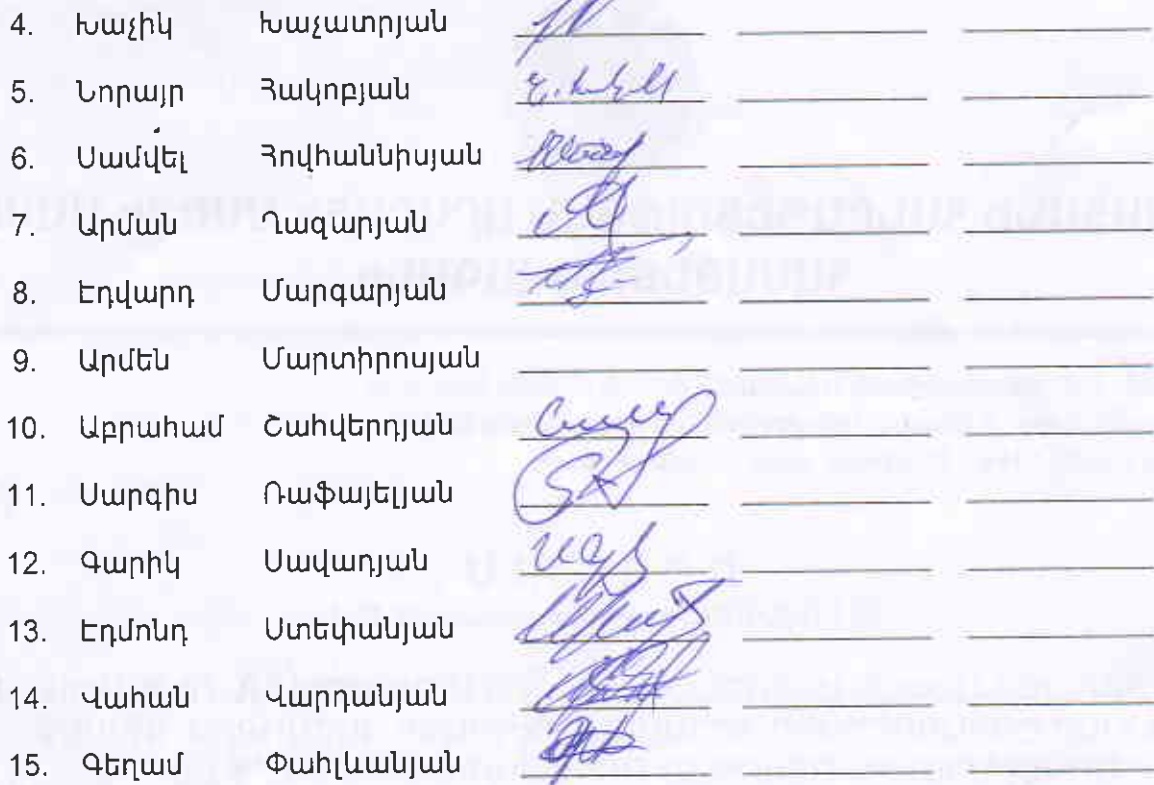 4. Խաչիկ Խաչատրյան
5. Նորայր Հակոբյան
6. Սամվել Հովհաննիսյան
7. Արման Ղազարյան
8. Էդվարդ Մարգարյան
9. Արմեն Մարտիրոսյան
10. Աբրահամ Շահվերդյան
11. Սարգիս Ռաֆայելյան
12. Գարիկ Սավադյան
13. Էդմոնդ Ստեփանյան
14. Վահան Վարդանյան
15. Գեղամ Փահլևանյան